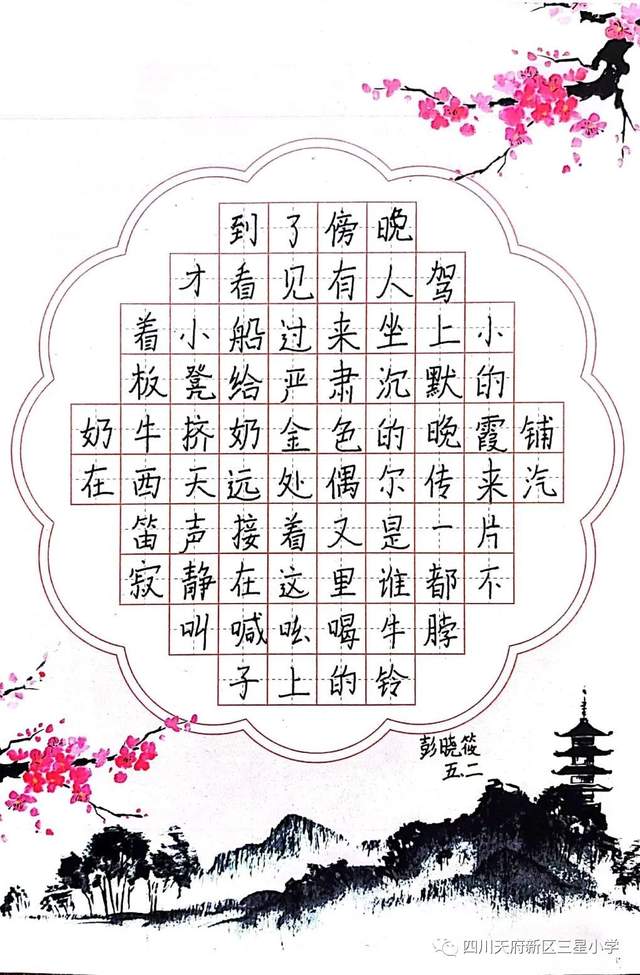 到了傍晚
才看见有人驾
着小船过来坐上小
板凳给严肃沉默的
奶牛挤奶金色的晚霞铺
在西天远处偶尔传来汽
笛声接着又是一片
寂静在这里谁都不
叫喊吆喝牛脖
子上的铃
彭晓筱
五.二
四川天府新区三星小学